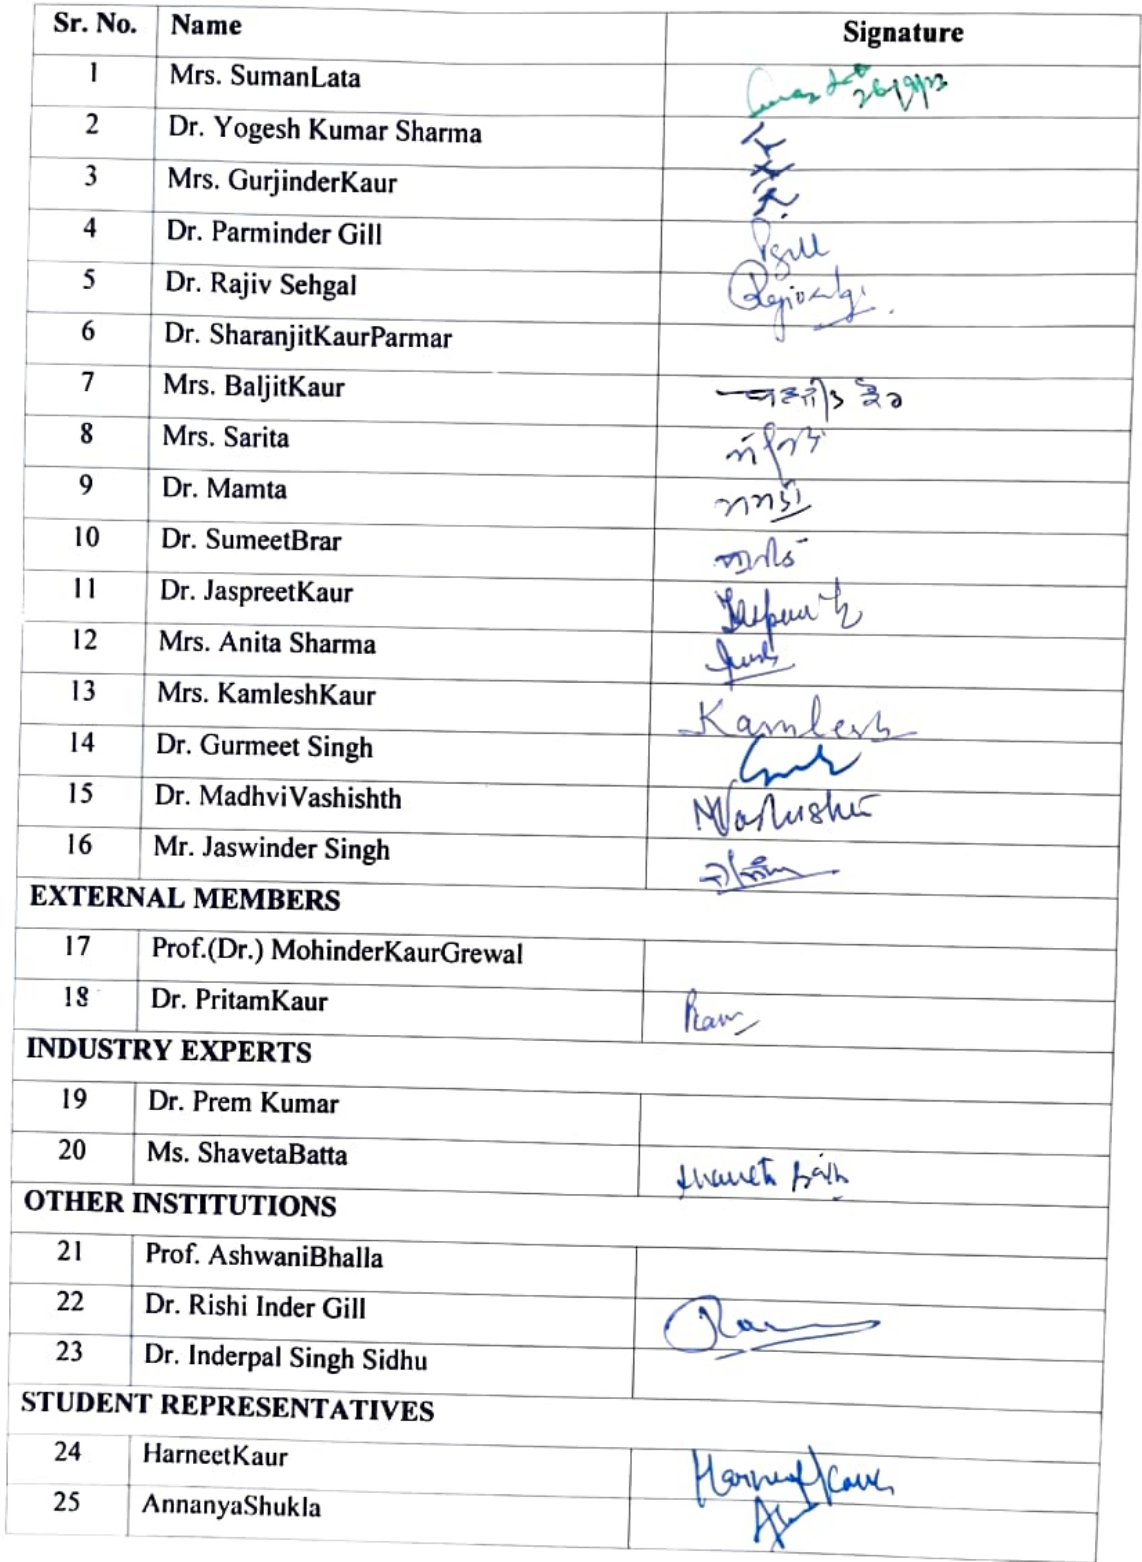 Sr. No. Name Signature
1 Mrs. SumanLata 26/9/23
2 Dr. Yogesh Kumar Sharma
3 Mrs. GurjinderKaur
4 Dr. Parminder Gill Pgill
5 Dr. Rajiv Sehgal
6 Dr. SharanjitKaurParmar
7 Mrs. BaljitKaur
8 Mrs. Sarita
9 Dr. Mamta
10 Dr. SumeetBrar
11 Dr. JaspreetKaur
12 Mrs. Anita Sharma
13 Mrs. KamleshKaur Kamlesh
14 Dr. Gurmeet Singh
15 Dr. MadhviVashishth
16 Mr. Jaswinder Singh
EXTERNAL MEMBERS
17 Prof.(Dr.) MohinderKaurGrewal
18 Dr. PritamKaur
INDUSTRY EXPERTS
19 Dr. Prem Kumar
20 Ms. ShavetaBatta
OTHER INSTITUTIONS
21 Prof. AshwaniBhalla
22 Dr. Rishi Inder Gill
23 Dr. Inderpal Singh Sidhu
STUDENT REPRESENTATIVES
24 HarneetKaur Harneet Kaur
25 AnnanyaShukla